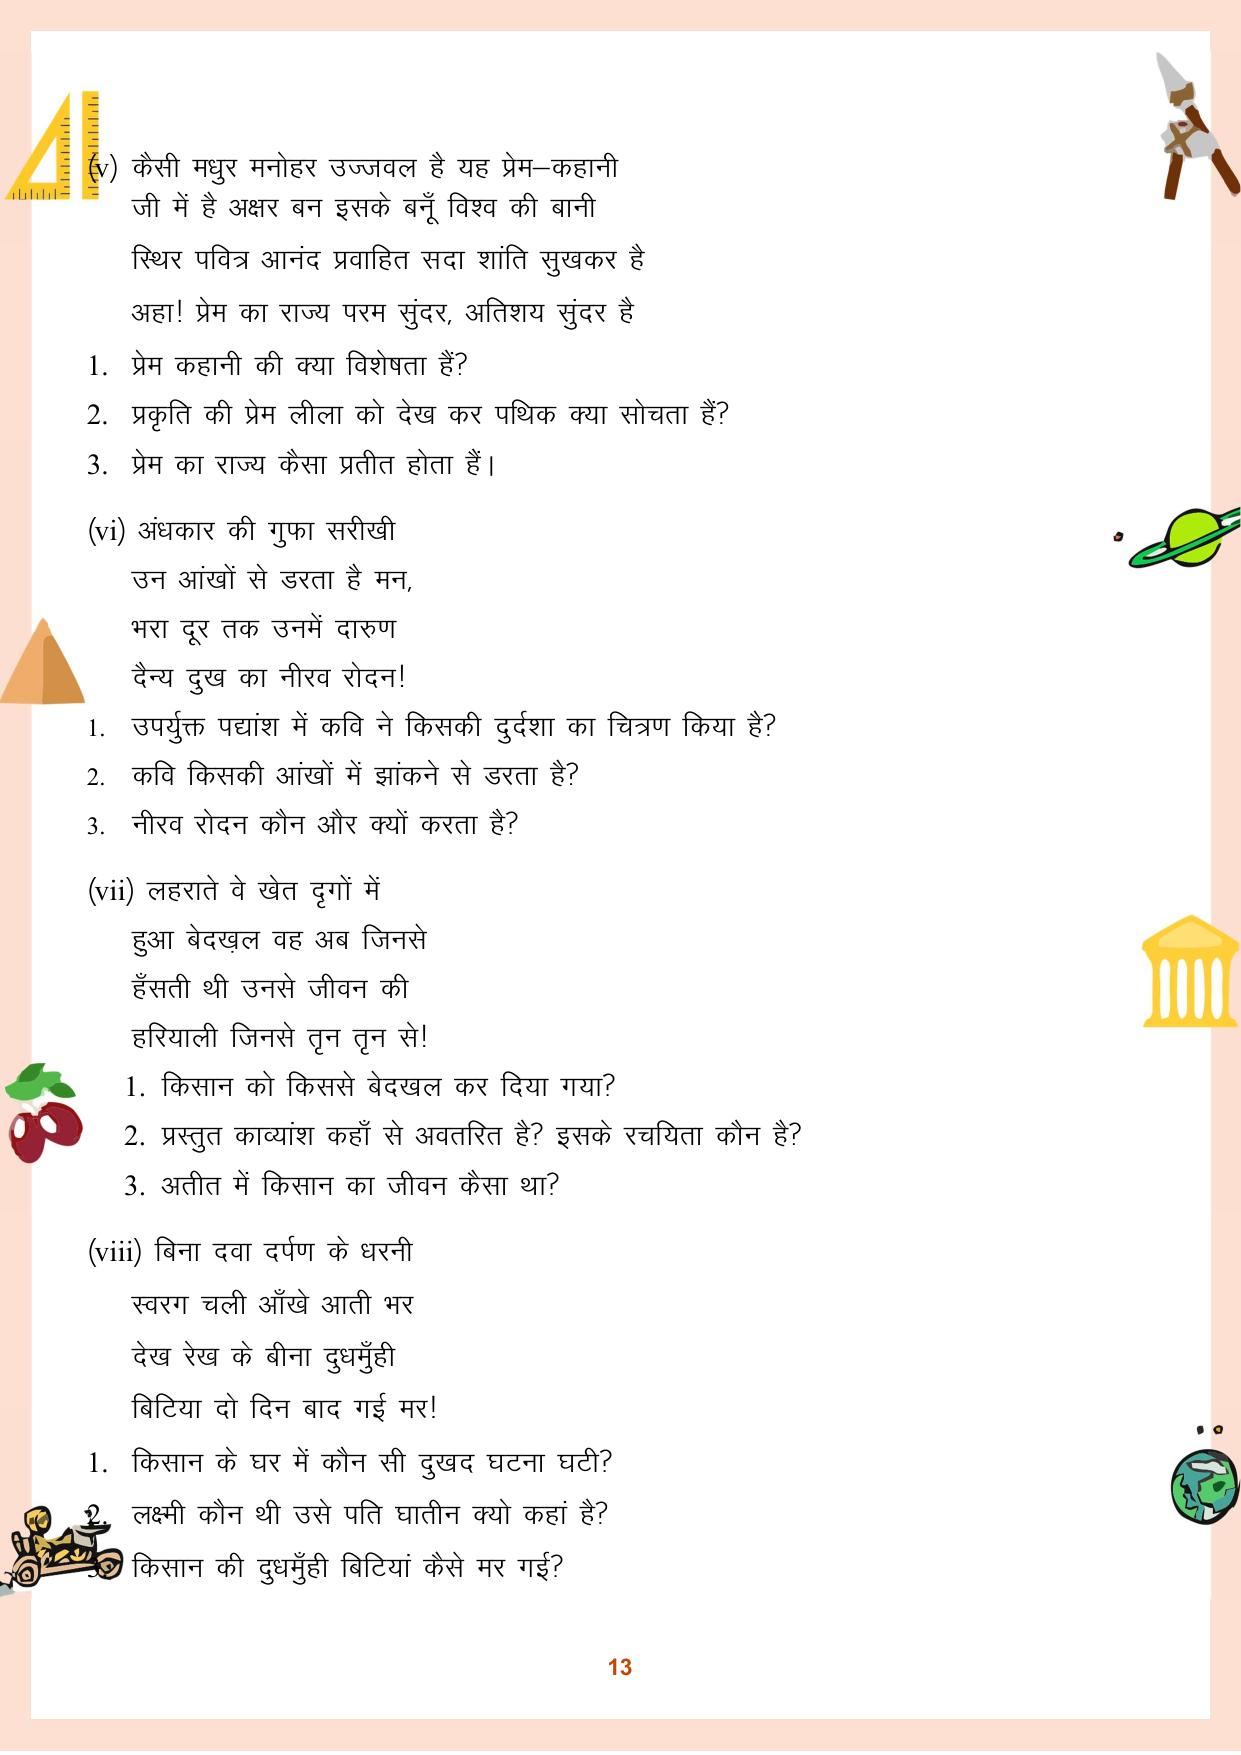 (v) कैसी मधुर मनोहर उज्जवल है यह प्रेम–कहानी
जी में है अक्षर बन इसके बनूँ विश्व की बानी
स्थिर पवित्र आनंद प्रवाहित सदा शांति सुखकर है
अहा! प्रेम का राज्य परम सुंदर, अतिशय सुंदर है
1. प्रेम कहानी की क्या विशेषता हैं?
2. प्रकृति की प्रेम लीला को देख कर पथिक क्या सोचता हैं?
3. प्रेम का राज्य कैसा प्रतीत होता हैं।
(vi) अंधकार की गुफा सरीखी
उन आंखों से डरता है मन,
भरा दूर तक उनमें दारुण
दैन्य दुख का नीरव रोदन!
1. उपर्युक्त पद्यांश में कवि ने किसकी दुर्दशा का चित्रण किया है?
2. कवि किसकी आंखों में झांकने से डरता है?
3. नीरव रोदन कौन और क्यों करता है?
(vii) लहराते वे खेत दृगों में
हुआ बेदख़ल वह अब जिनसे
हँसती थी उनसे जीवन की
हरियाली जिनसे तृन तृन से!
1. किसान को किससे बेदखल कर दिया गया?
2. प्रस्तुत काव्यांश कहाँ से अवतरित है? इसके रचयिता कौन है?
3. अतीत में किसान का जीवन कैसा था?
(viii) बिना दवा दर्पण के धरनी
स्वरग चली आँखे आती भर
देख रेख के बीना दुधमुँही
बिटिया दो दिन बाद गई मर!
1. किसान के घर में कौन सी दुखद घटना घटी?
2. लक्ष्मी कौन थी उसे पति घातीन क्यो कहां है?
3. किसान की दुधमुँही बिटियां कैसे मर गई?
13